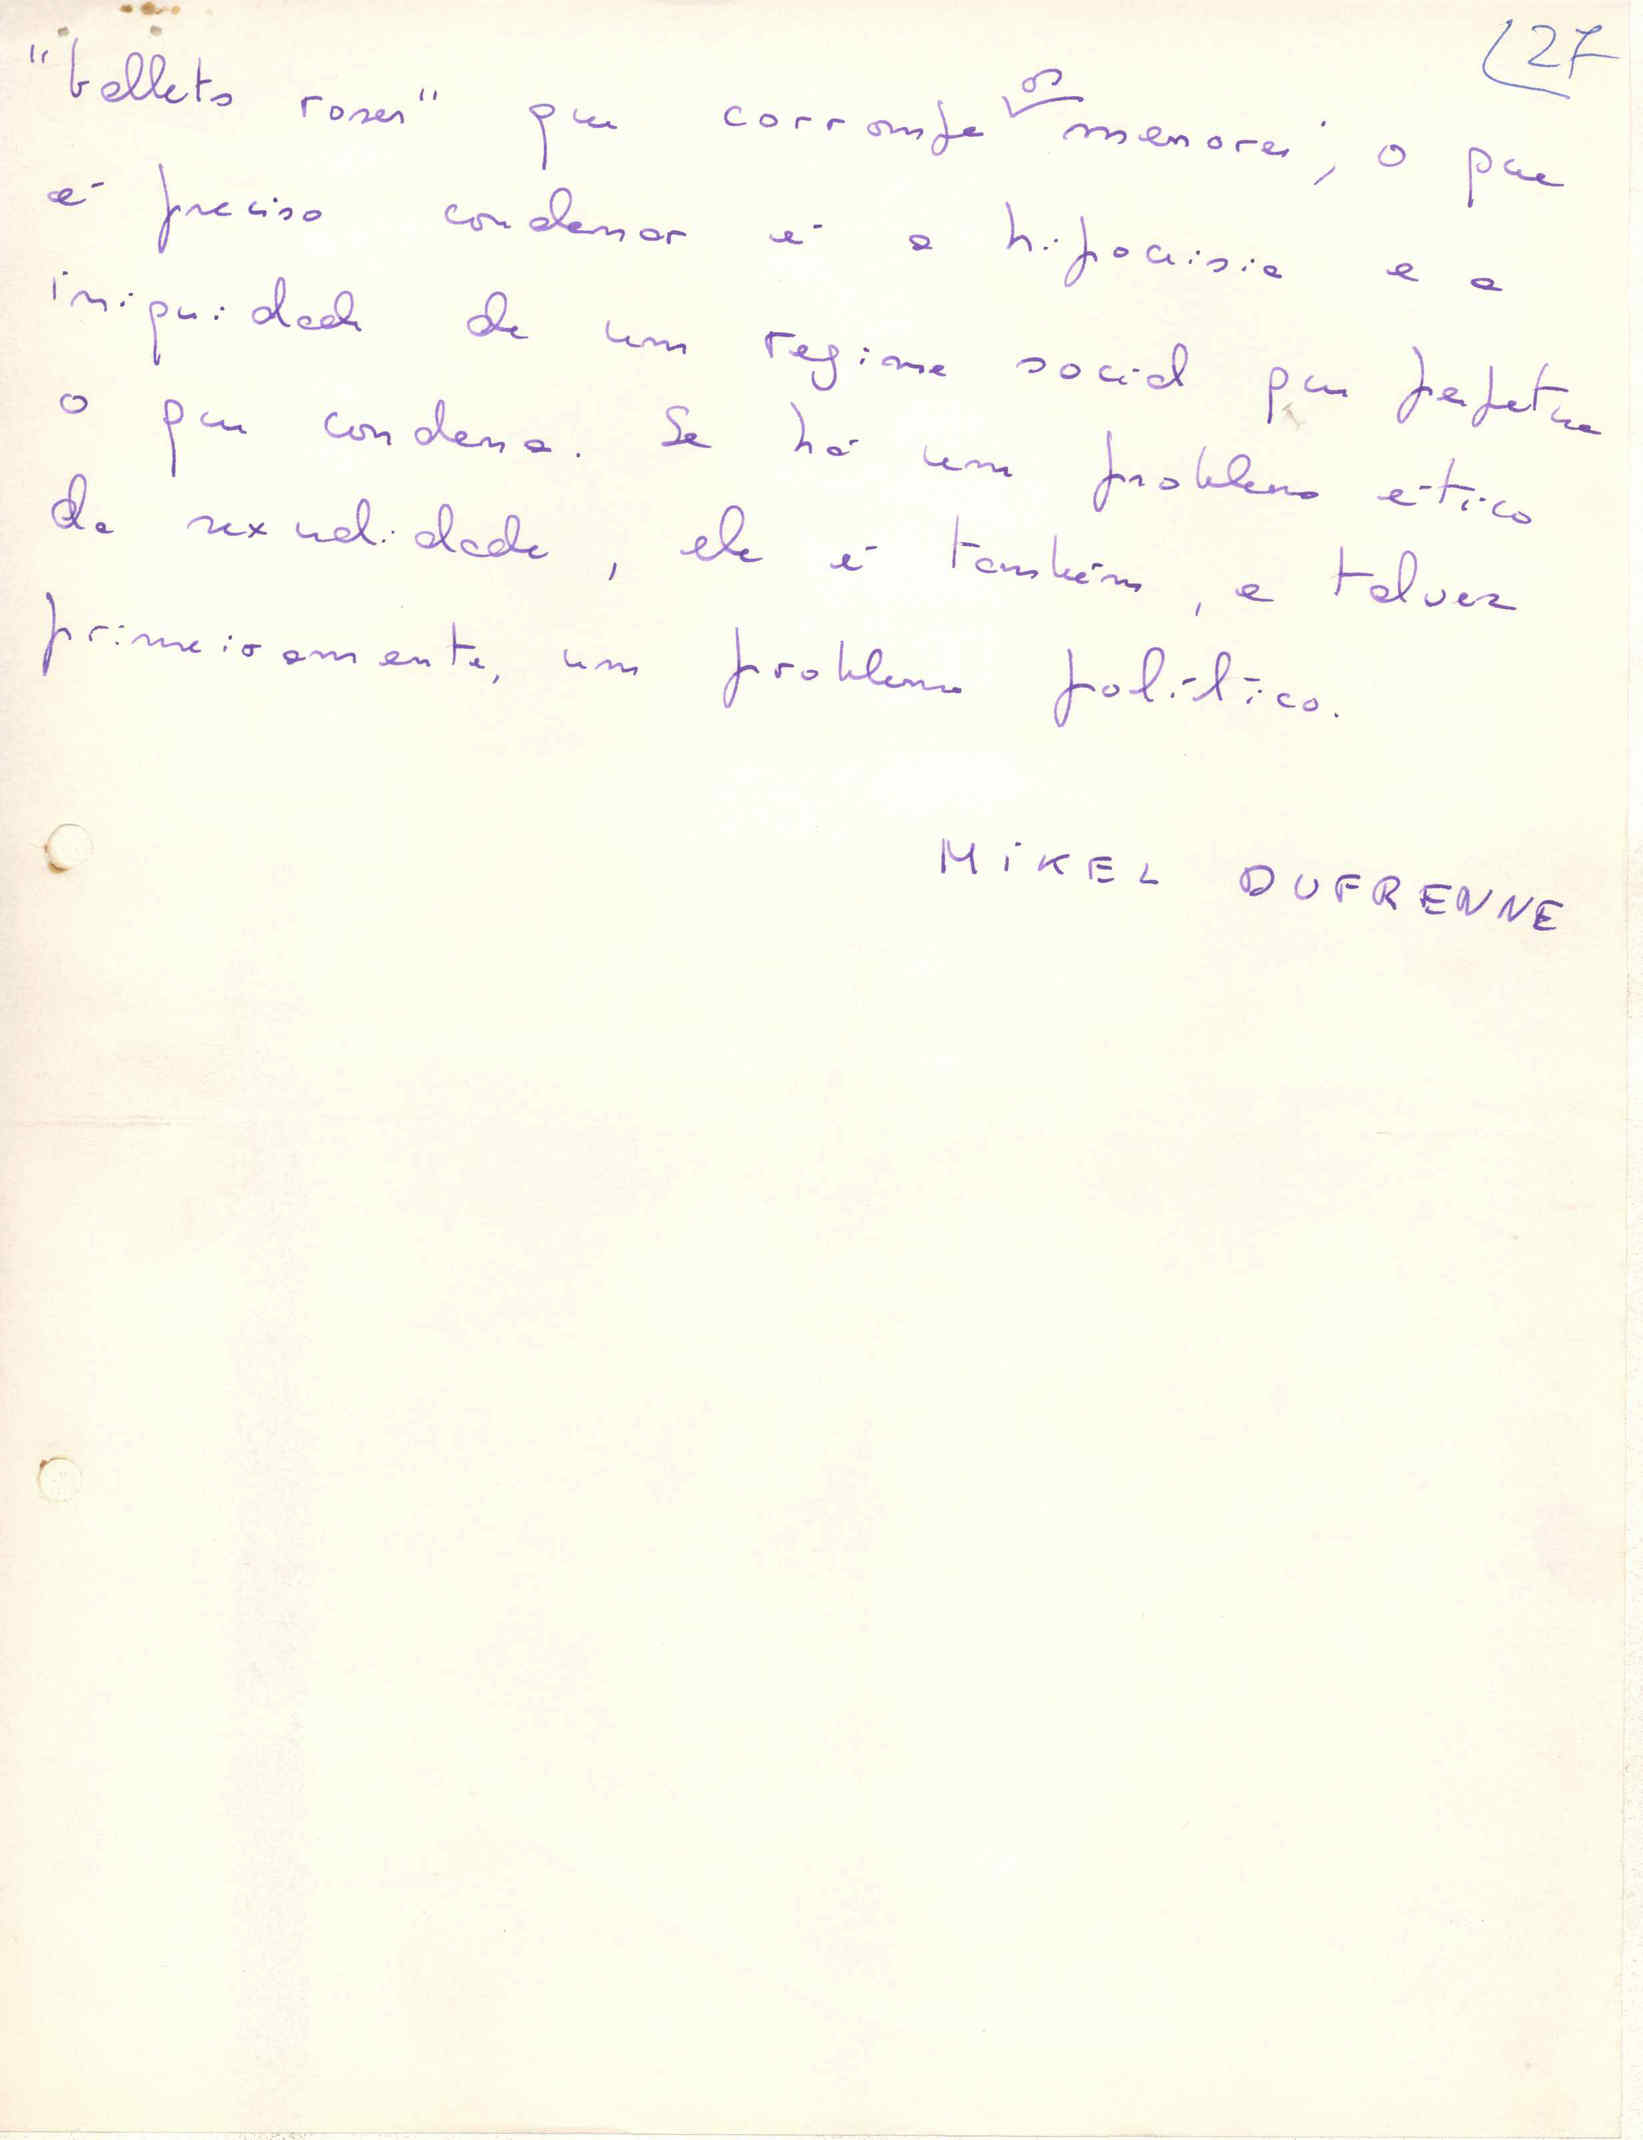 27
"ballets roses" que corrompe os menores, o que
é preciso condenar é a hipocrisia e a
iniquidade de um regime social que perpetua
o que condena. Se há um problema ético
da sexualidade, ele é também, e talvez
primeiramente, um problema político.
MIKEL DUFRENNE